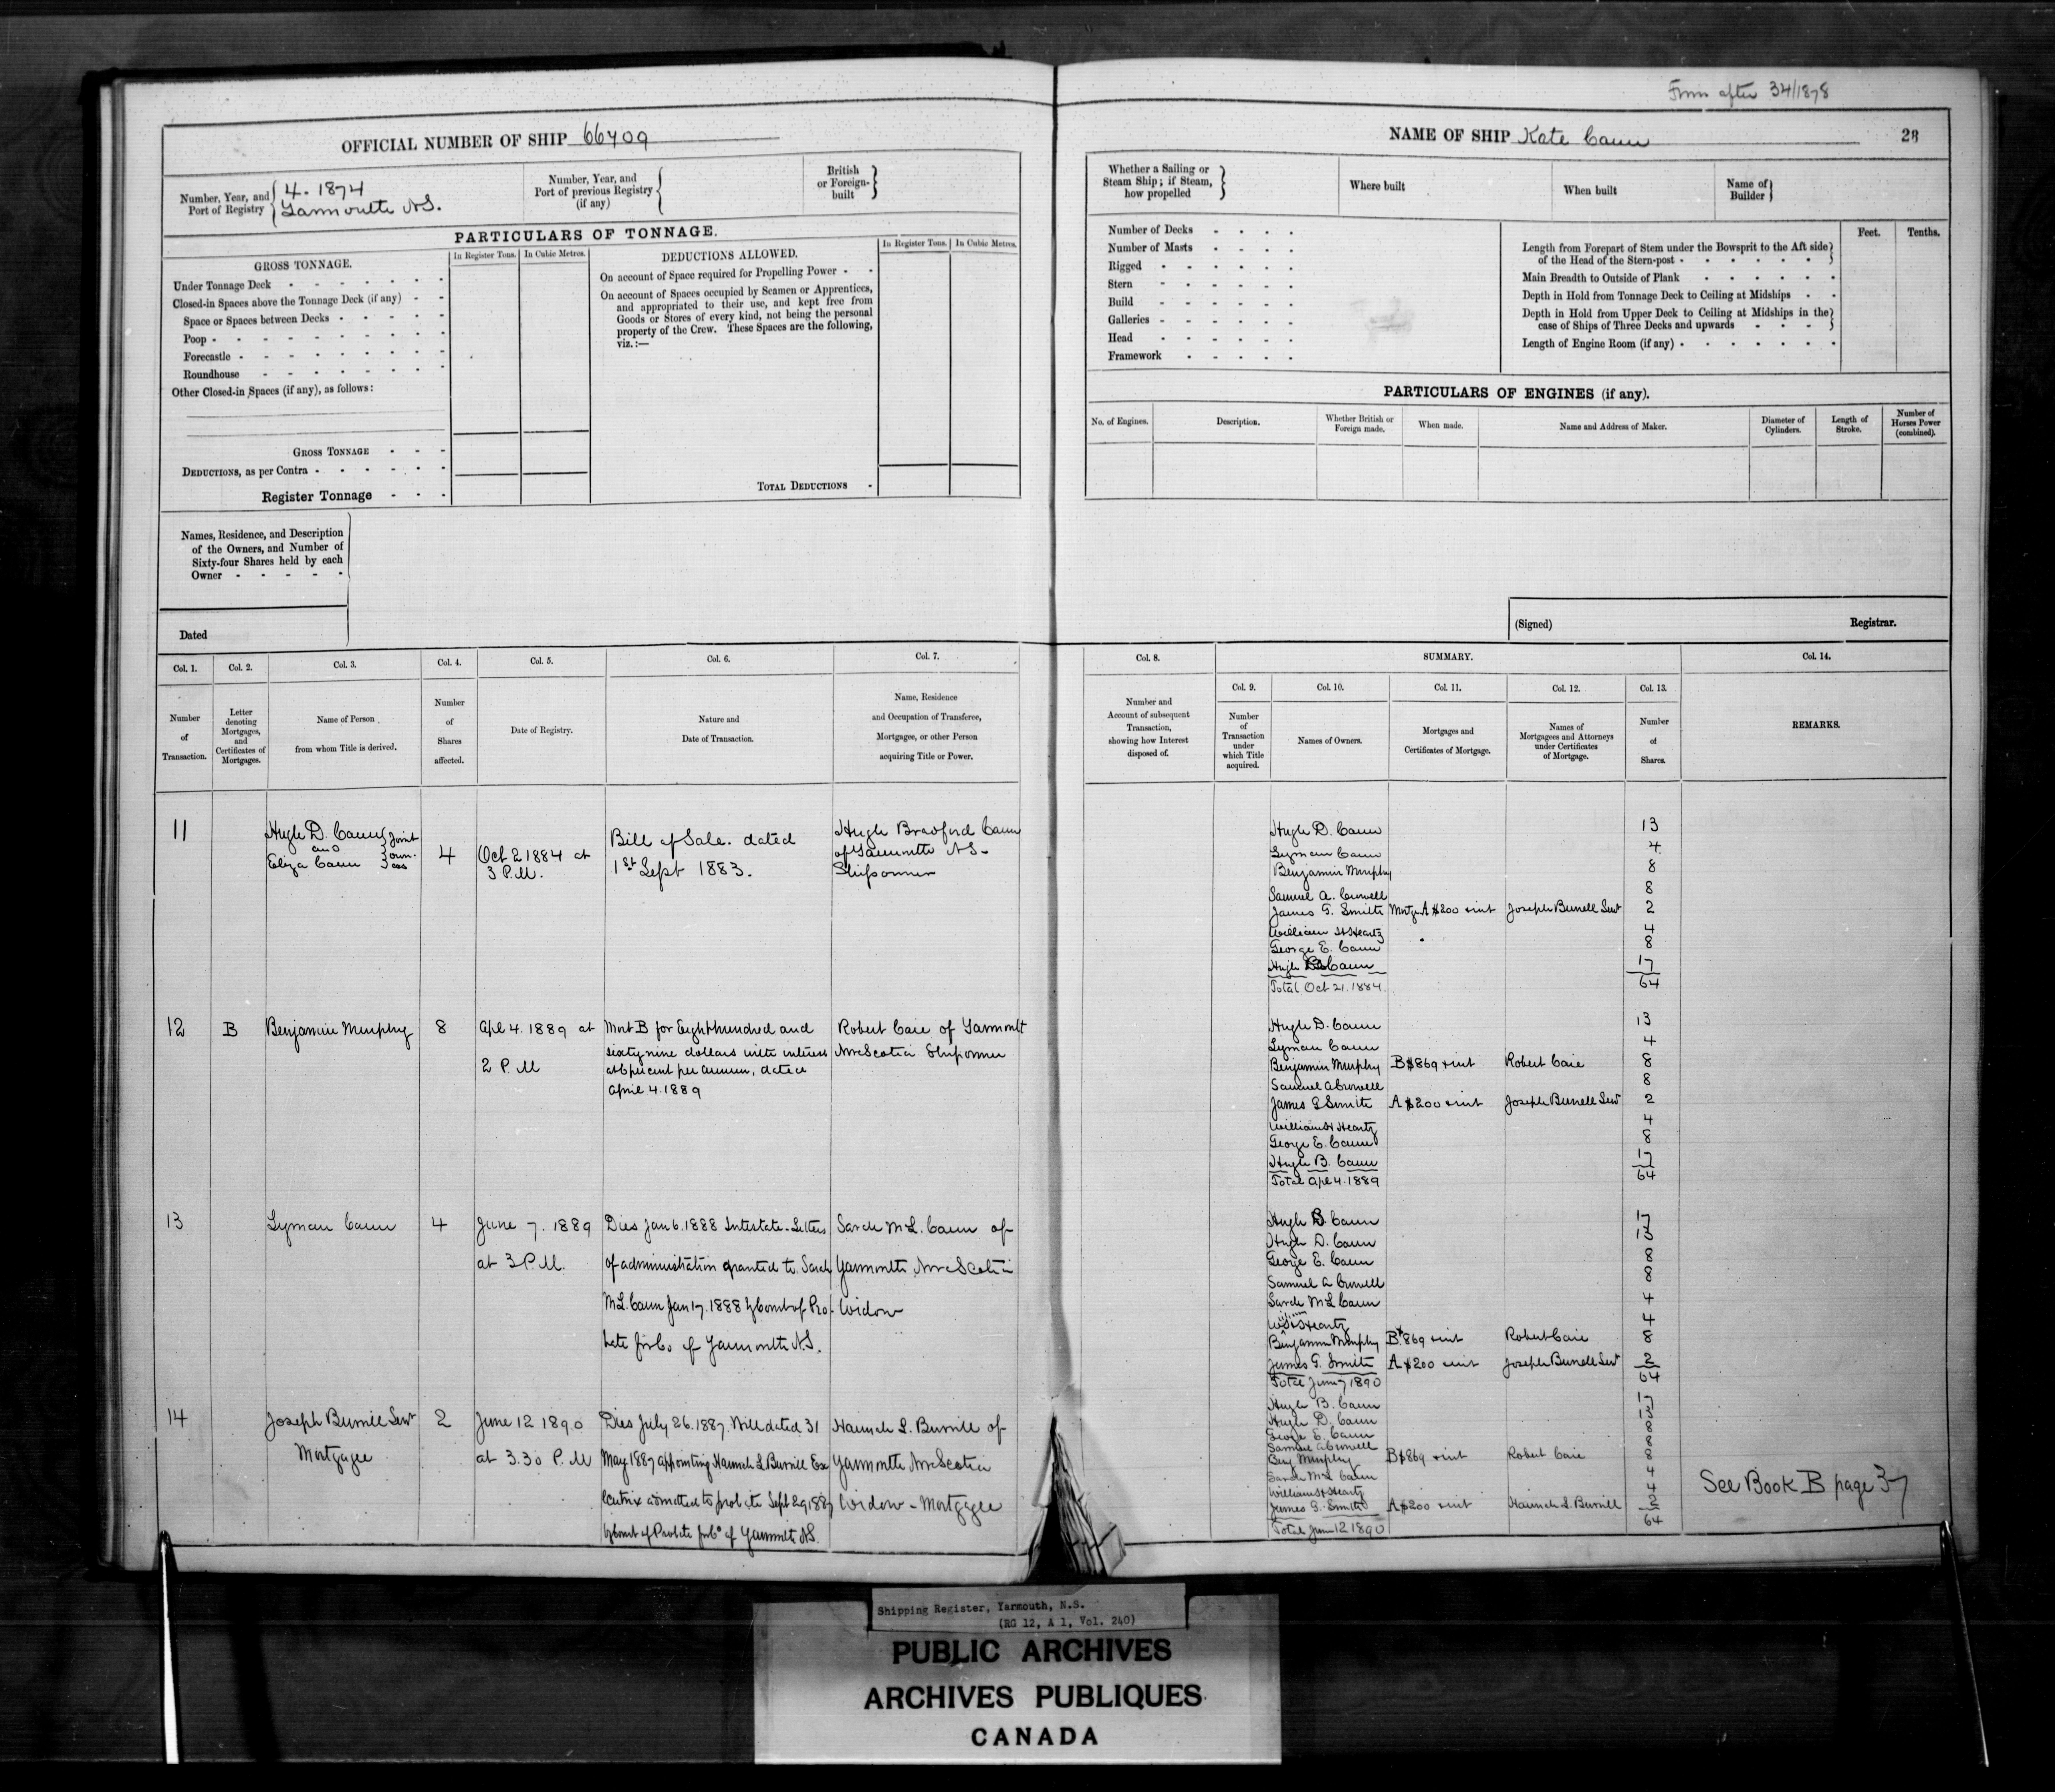 From after 34/1878
OFFICIAL NUMBER OF SHIP 66709
Number, Year, and Port of Registry
4. 1874
Yarmouth N.S.
Number, Year, and Port of previous Registry (if any)
British or Foreign-built
PARTICULARS OF TONNAGE.
GROSS TONNAGE.
In Register Tons.
In Cubic Metres.
Under Tonnage Deck
Closed-in Spaces above the Tonnage Deck (if any)
Space or Spaces between Decks
Poop
Forecastle
Roundhouse
Other Closed-in Spaces (if any), as follows:
GROSS TONNAGE
DEDUCTIONS, as per Contra
Register Tonnage
DEDUCTIONS ALLOWED.
In Register Tons.
In Cubic Metres.
On account of Space required for Propelling Power
On account of Spaces occupied by Seamen or Apprentices,
and appropriated to their use, and kept free from
Goods or Stores of every kind, not being the personal
property of the Crew. These Spaces are the following,
viz.:—
TOTAL DEDUCTIONS
Names, Residence, and Description
of the Owners, and Number of
Sixty-four Shares held by each
Owner
Dated
Col. 1.
Number of Transaction.
Col. 2.
Letter denoting Mortgages, and Certificates of Mortgages.
Col. 3.
Name of Person
from whom Title is derived.
Col. 4.
Number of Shares affected.
Col. 5.
Date of Registry.
Col. 6.
Nature and
Date of Transaction.
Col. 7.
Name, Residence
and Occupation of Transferee,
Mortgagee, or other Person
acquiring Title or Power.
11
Hugh D. Cann
and
Eliza Cann
Joint
own-
ers
4
Oct 2 1884 at
3 P.M.
Bill of Sale. dated
1st Sept 1883.
Hugh Bradford Cann
of Yarmouth N.S.
Shipowner
12
B
Benjamin Murphy
8
Apl 4. 1889 at
2 P.M
Mort B for Eight hundred and
sixty nine dollars with interest
at 6 per cent per annum, dated
April 4. 1889
Robert Caie of Yarmouth
Nova Scotia Shipowner
13
Lyman Cann
4
June 7. 1889
at 3 P.M.
Died Jan 6. 1888 Intestate. Letters
of administration granted to Sarah
M.L. Cann Jan 17. 1888 by Court of Pro-
bate for Co of Yarmouth N.S.
Sarah M L. Cann of
Yarmouth, Nova Scotia
Widow
14
Joseph Burrill Senr
Mortgagee
2
June 12 1890
at 3.30 P.M
Died July 26. 1887. Will dated 31
May 1887 appointing Hannah L Burrill Exe
cutrix admitted to probate Sept 29, 1887
by Court of Probate for Co of Yarmouth N.S.
Hannah L. Burrill of
Yarmouth Nova Scotia
Widow - Mortgagee
NAME OF SHIP Kate Cann
28
Whether a Sailing or
Steam Ship; if Steam,
how propelled
Where built
When built
Name of Builder
Number of Decks
Number of Masts
Rigged
Stern
Build
Galleries
Head
Framework
Feet.
Tenths.
Length from Forepart of Stem under the Bowsprit to the Aft side
of the Head of the Stern-post
Main Breadth to Outside of Plank
Depth in Hold from Tonnage Deck to Ceiling at Midships
Depth in Hold from Upper Deck to Ceiling at Midships in the
case of Ships of Three Decks and upwards
Length of Engine Room (if any)
PARTICULARS OF ENGINES (if any).
No. of Engines.
Description.
Whether British or Foreign made.
When made.
Name and Address of Maker.
Diameter of Cylinders.
Length of Stroke.
Number of Horses Power (combined).
(Signed)
Registrar.
Col. 8.
Number and
Account of subsequent
Transaction,
showing how Interest
disposed of.
SUMMARY.
Col. 9.
Number of Transaction under which Title acquired.
Col. 10.
Names of Owners.
Col. 11.
Mortgages and
Certificates of Mortgage.
Col. 12.
Names of
Mortgagees and Attorneys
under Certificates
of Mortgage.
Col. 13.
Number of Shares.
Col. 14.
REMARKS.
Hugh D. Cann 13
Lyman Cann 4
Benjamin Murphy 8
Samuel A. Crowell 8
James G. Smith Mortge A $200 & int Joseph Burrell Senr 2
William H Heartz 4
George E. Cann 8
Hugh B Cann 17
Total Oct 21. 1884. 64
Hugh D. Cann 13
Lyman Cann 4
Benjamin Murphy B $869 & int Robert Caie 8
Samuel A Crowell 8
James G Smith A $200 & int Joseph Burrell Senr 2
William H Heartz 4
George E. Cann 8
Hugh B. Cann 17
Total Apl 4. 1889 64
Hugh B Cann 17
Hugh D. Cann 13
George E. Cann 8
Samuel A Crowell 8
Sarah M L Cann 4
Wm H Heartz 4
Benjamin Murphy B $869 & int Robert Caie 8
James G. Smith A $200 & int Joseph Burrell Senr 2
Total June 7 1890 64
Hugh B. Cann 17
Hugh D. Cann 13
George E. Cann 8
Samuel A Crowell 8
Benj Murphy B $869 & int Robert Caie 8
Sarah M L Cann 4
William H Heartz 4
James G. Smith A $200 & int Hannah L. Burrill 2
Total June 12 1890 64
See Book B page 37
Shipping Register, Yarmouth, N.S.
(RG 12, A 1, Vol. 240)
PUBLIC ARCHIVES
ARCHIVES PUBLIQUES
CANADA